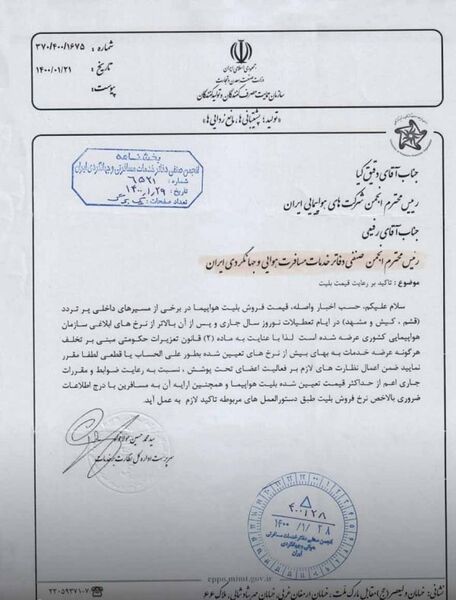 شماره : ۳۷۰/۴۰۰/۱۶۷۵
تاریخ : ۱۴۰۰/۰۱/۲۱
پیوست:
جمهوری اسلامی ایران
وزارت صنعت، معدن و تجارت
سازمان حمایت مصرف کنندگان و تولیدکنندگان
«تولید؛ پشتیبانی ها، مانع زدایی ها»
بخشنامه
انجمن صنفی دفاتر خدمات مسافرتی و جهانگردی ایران
شماره : ۶۵۲۱
تاریخ : ۱۴۰۰/۱/۲۹
تعداد صفحات:
جناب آقای دقیق کیا
رییس محترم انجمن شرکت های هواپیمایی ایران
جناب آقای رفیعی
رئیس محترم انجمن صنفی دفاتر خدمات مسافرت هوایی و جهانگردی ایران
موضوع : تاکید بر رعایت قیمت بلیت
سلام علیکم، حسب اخبار واصله، قیمت فروش بلیت هواپیما در برخی از مسیرهای داخلی پر تردد
(قشم ، کیش و مشهد) در ایام تعطیلات نوروز سال جاری و پس از آن بالاتر از نرخ های ابلاغی سازمان
هواپیمایی کشوری عرضه شده است لذا با عنایت به ماده (۲) قانون تعزیرات حکومتی مبنی بر تخلف
هرگونه عرضه خدمات به بهای بیش از نرخ های تعیین شده بطور علی الحساب یا قطعی لطفا مقرر
نمایید ضمن اعمال نظارت های لازم بر فعالیت اعضای تحت پوشش ، نسبت به رعایت ضوابط و مقررات
جاری اعم از حداکثر قیمت تعیین شده بلیت هواپیما و همچنین ارایه آن به مسافرین با درج اطلاعات
ضروری بالاخص نرخ فروش بلیت طبق دستورالعمل های مربوطه تاکید لازم به عمل آید.
سید محمد حسین مولاخواه
سرپرست اداره کل نظارت بر خدمات
۴۰۰۱۲۸
۱۴۰۰/۱/۲۸
انجمن صنفی دفاتر خدمات مسافرتی
هوایی و جهانگردی
ایران
cppo.mimt.gov.ir
۲۲۰۵۹۳۷۱-۷
نشانی: خیابان ولیعصر (عج)، مقابل پارک ملت، خیابان ارمغان غربی، خیابان مهرشاد شمالی، پلاک ۴۶